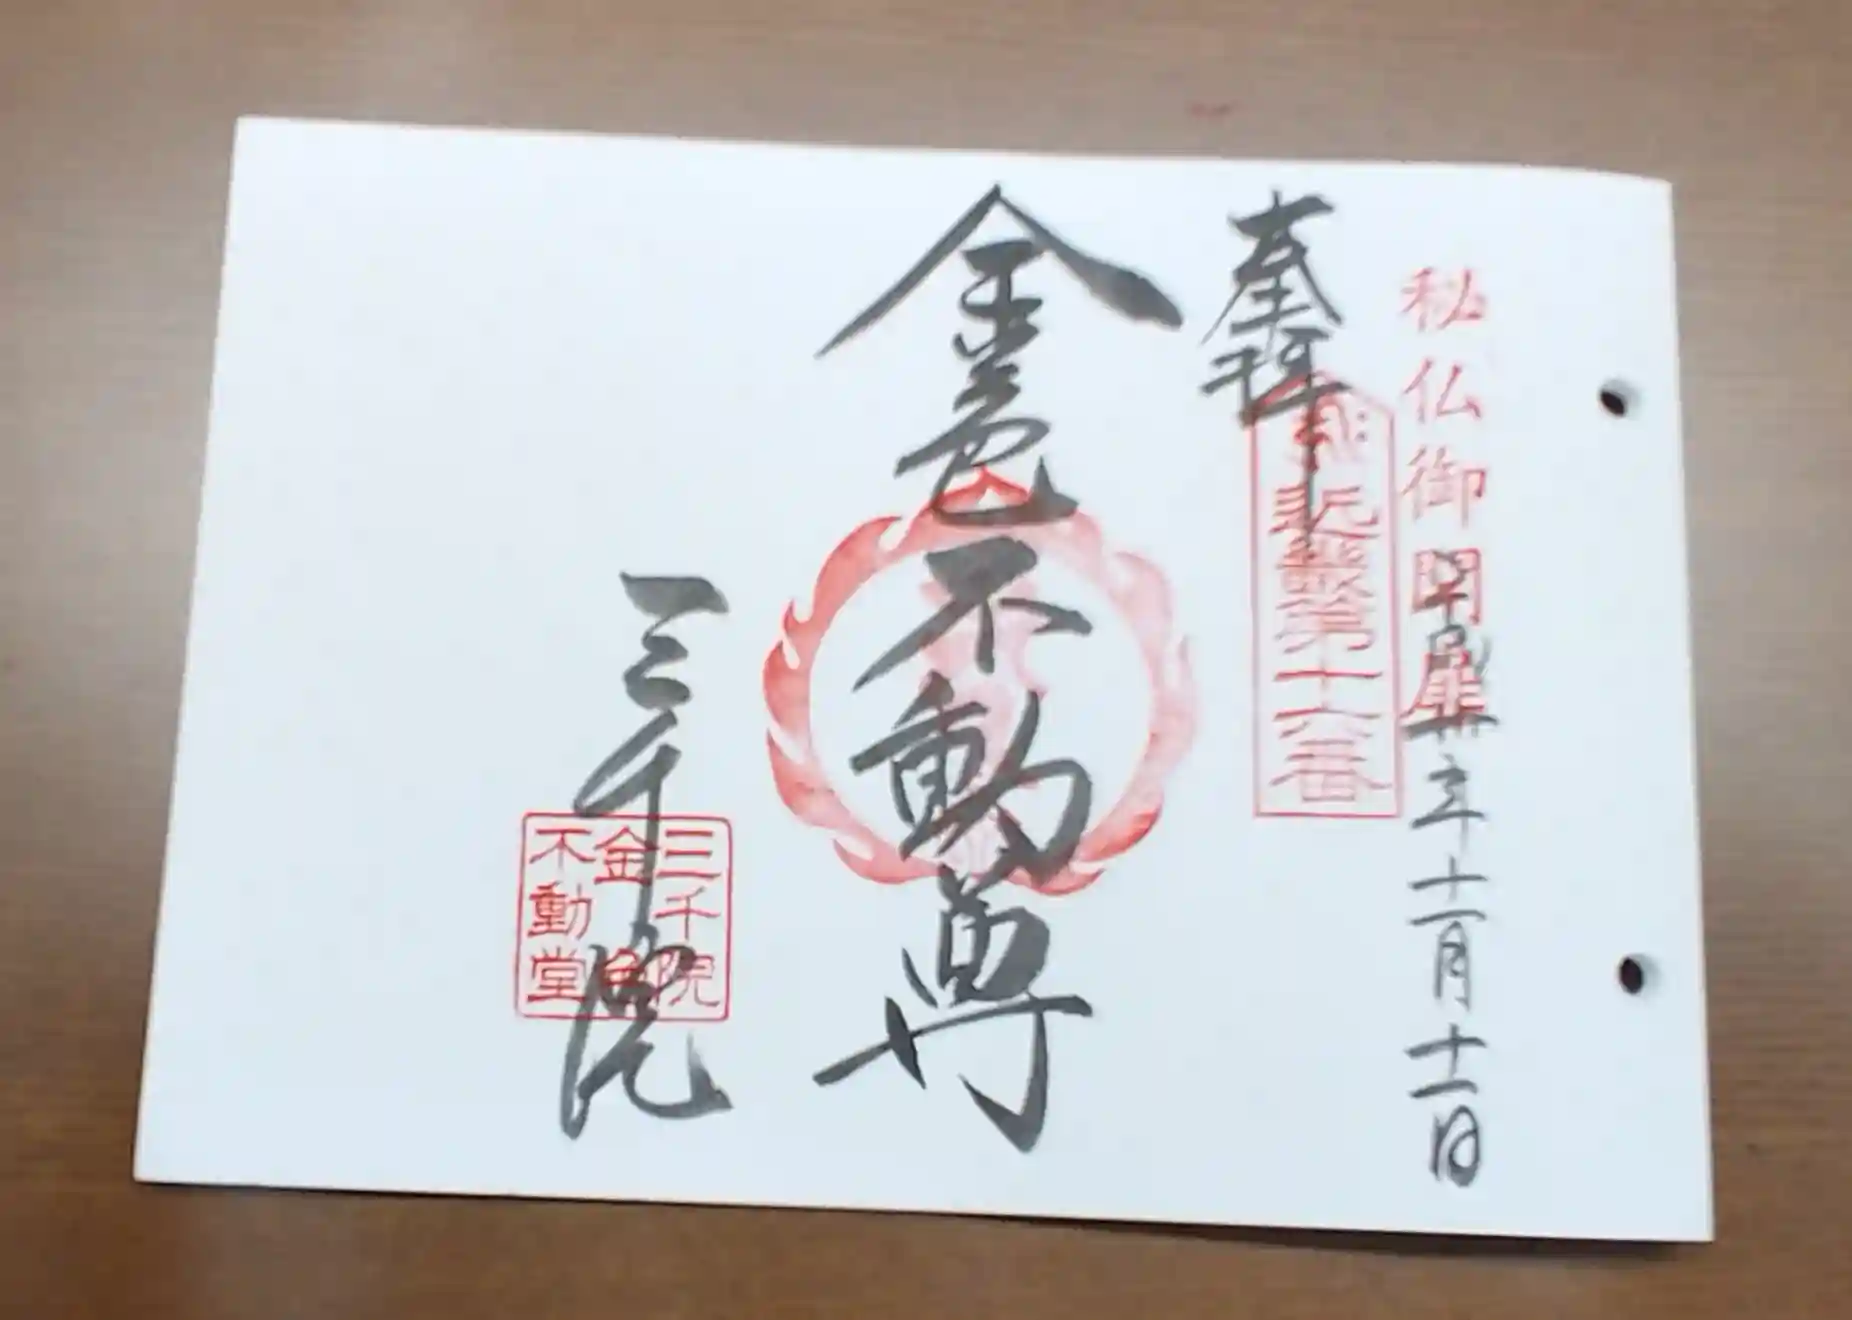 秘仏御開扉
平成 年十一月十一日
奉拝
近畿第十六番
金色不動尊
三千院
三千院
金色
不動堂